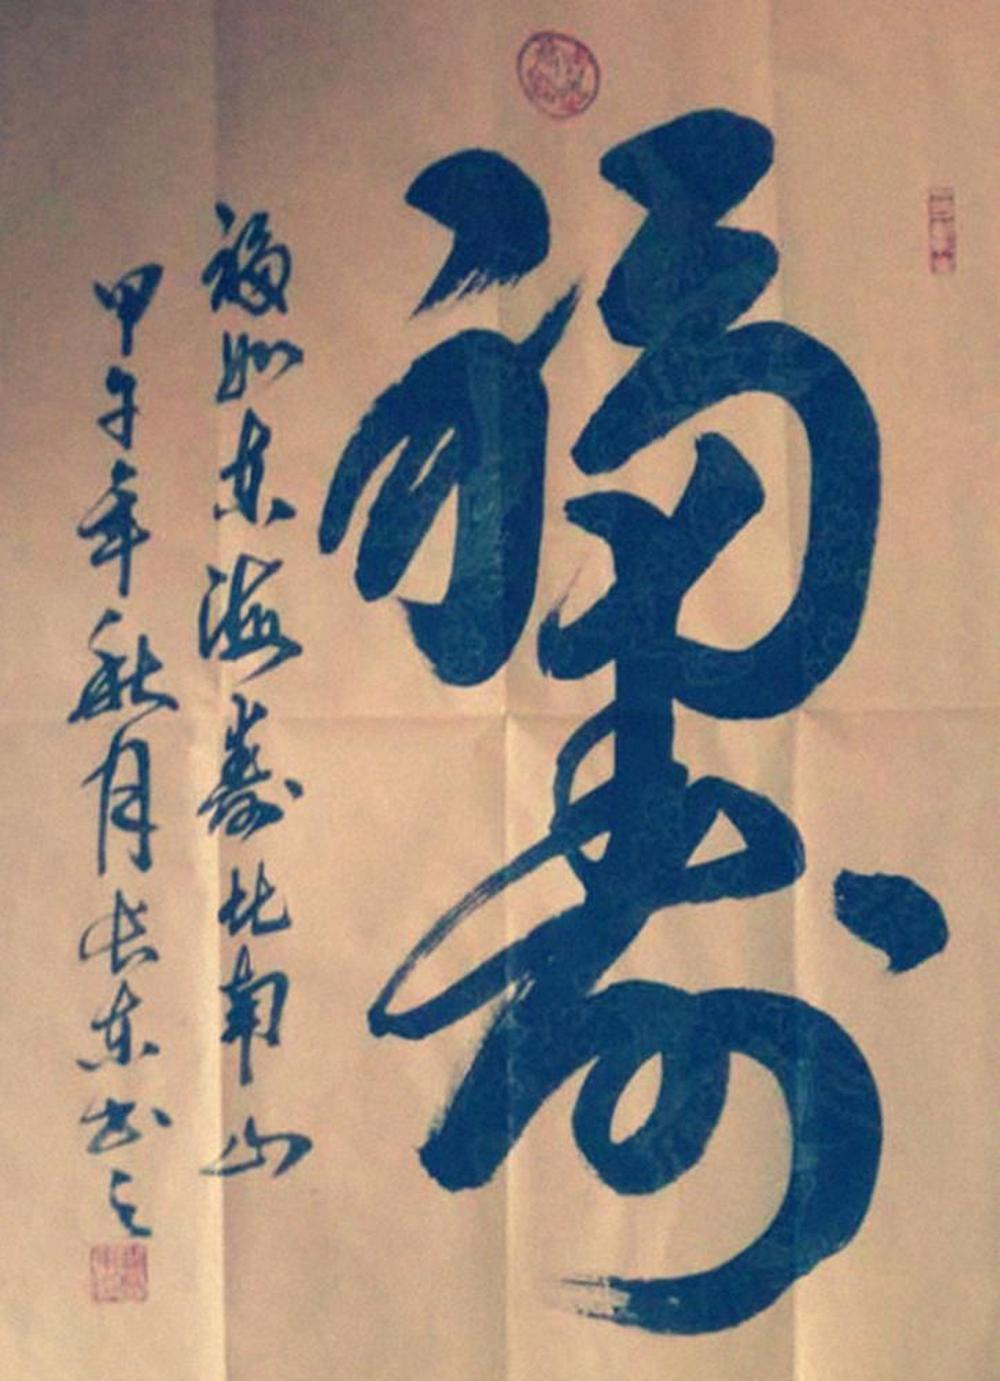 福寿
福如东海寿比南山
甲午年秋月长东书之